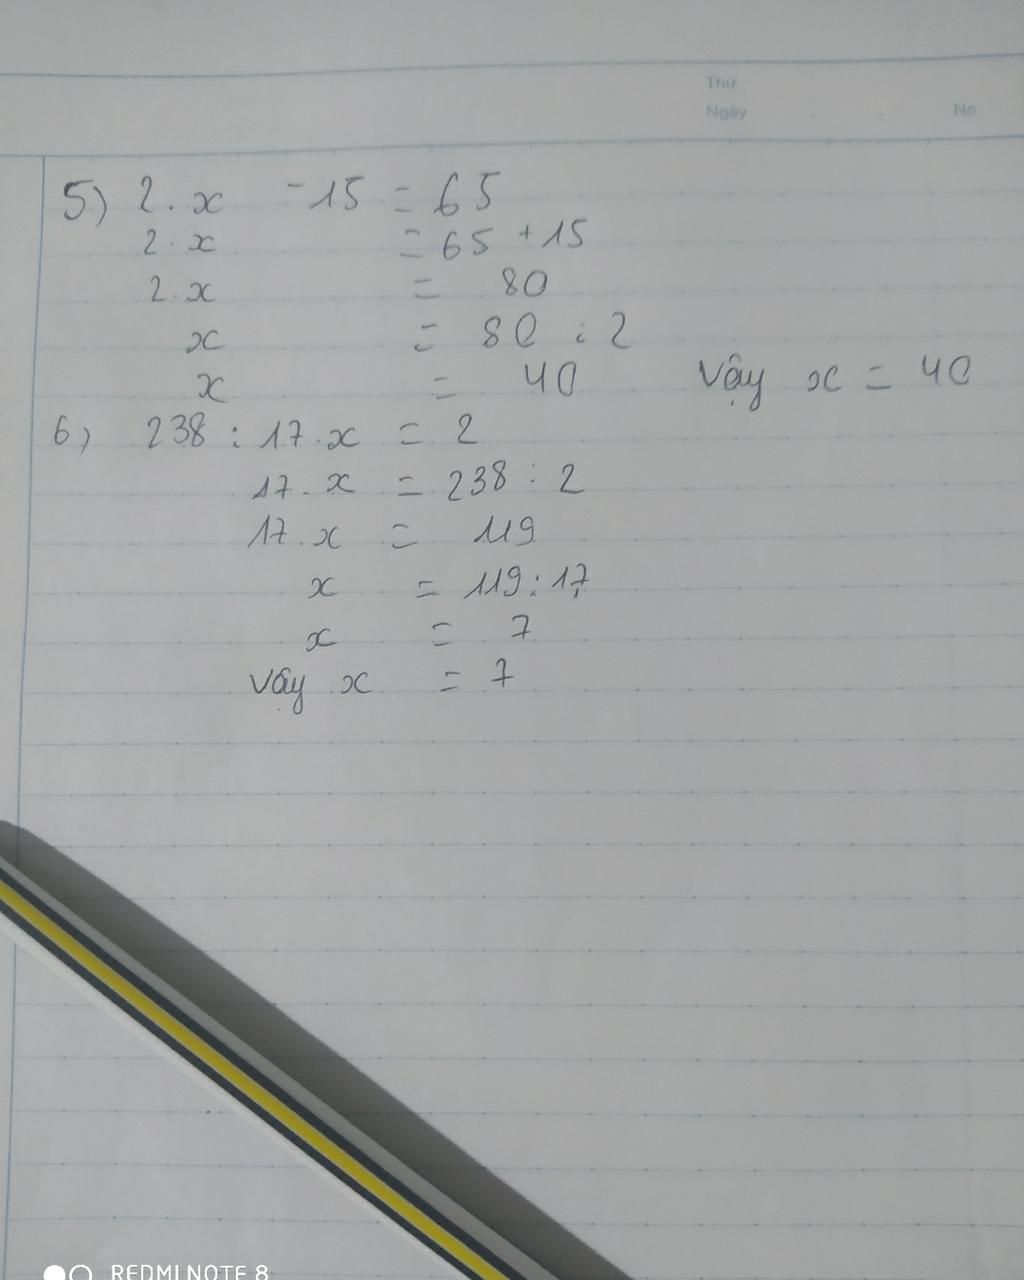 Thứ
Ngày No
5) 2.x - 15 = 65
2.x = 65 + 15
2.x = 80
x = 80 : 2
x = 40 Vậy x = 40
6) 238 : 17.x = 2
17.x = 238 : 2
17.x = 119
x = 119 : 17
x = 7
Vậy x = 7
REDMI NOTE 8